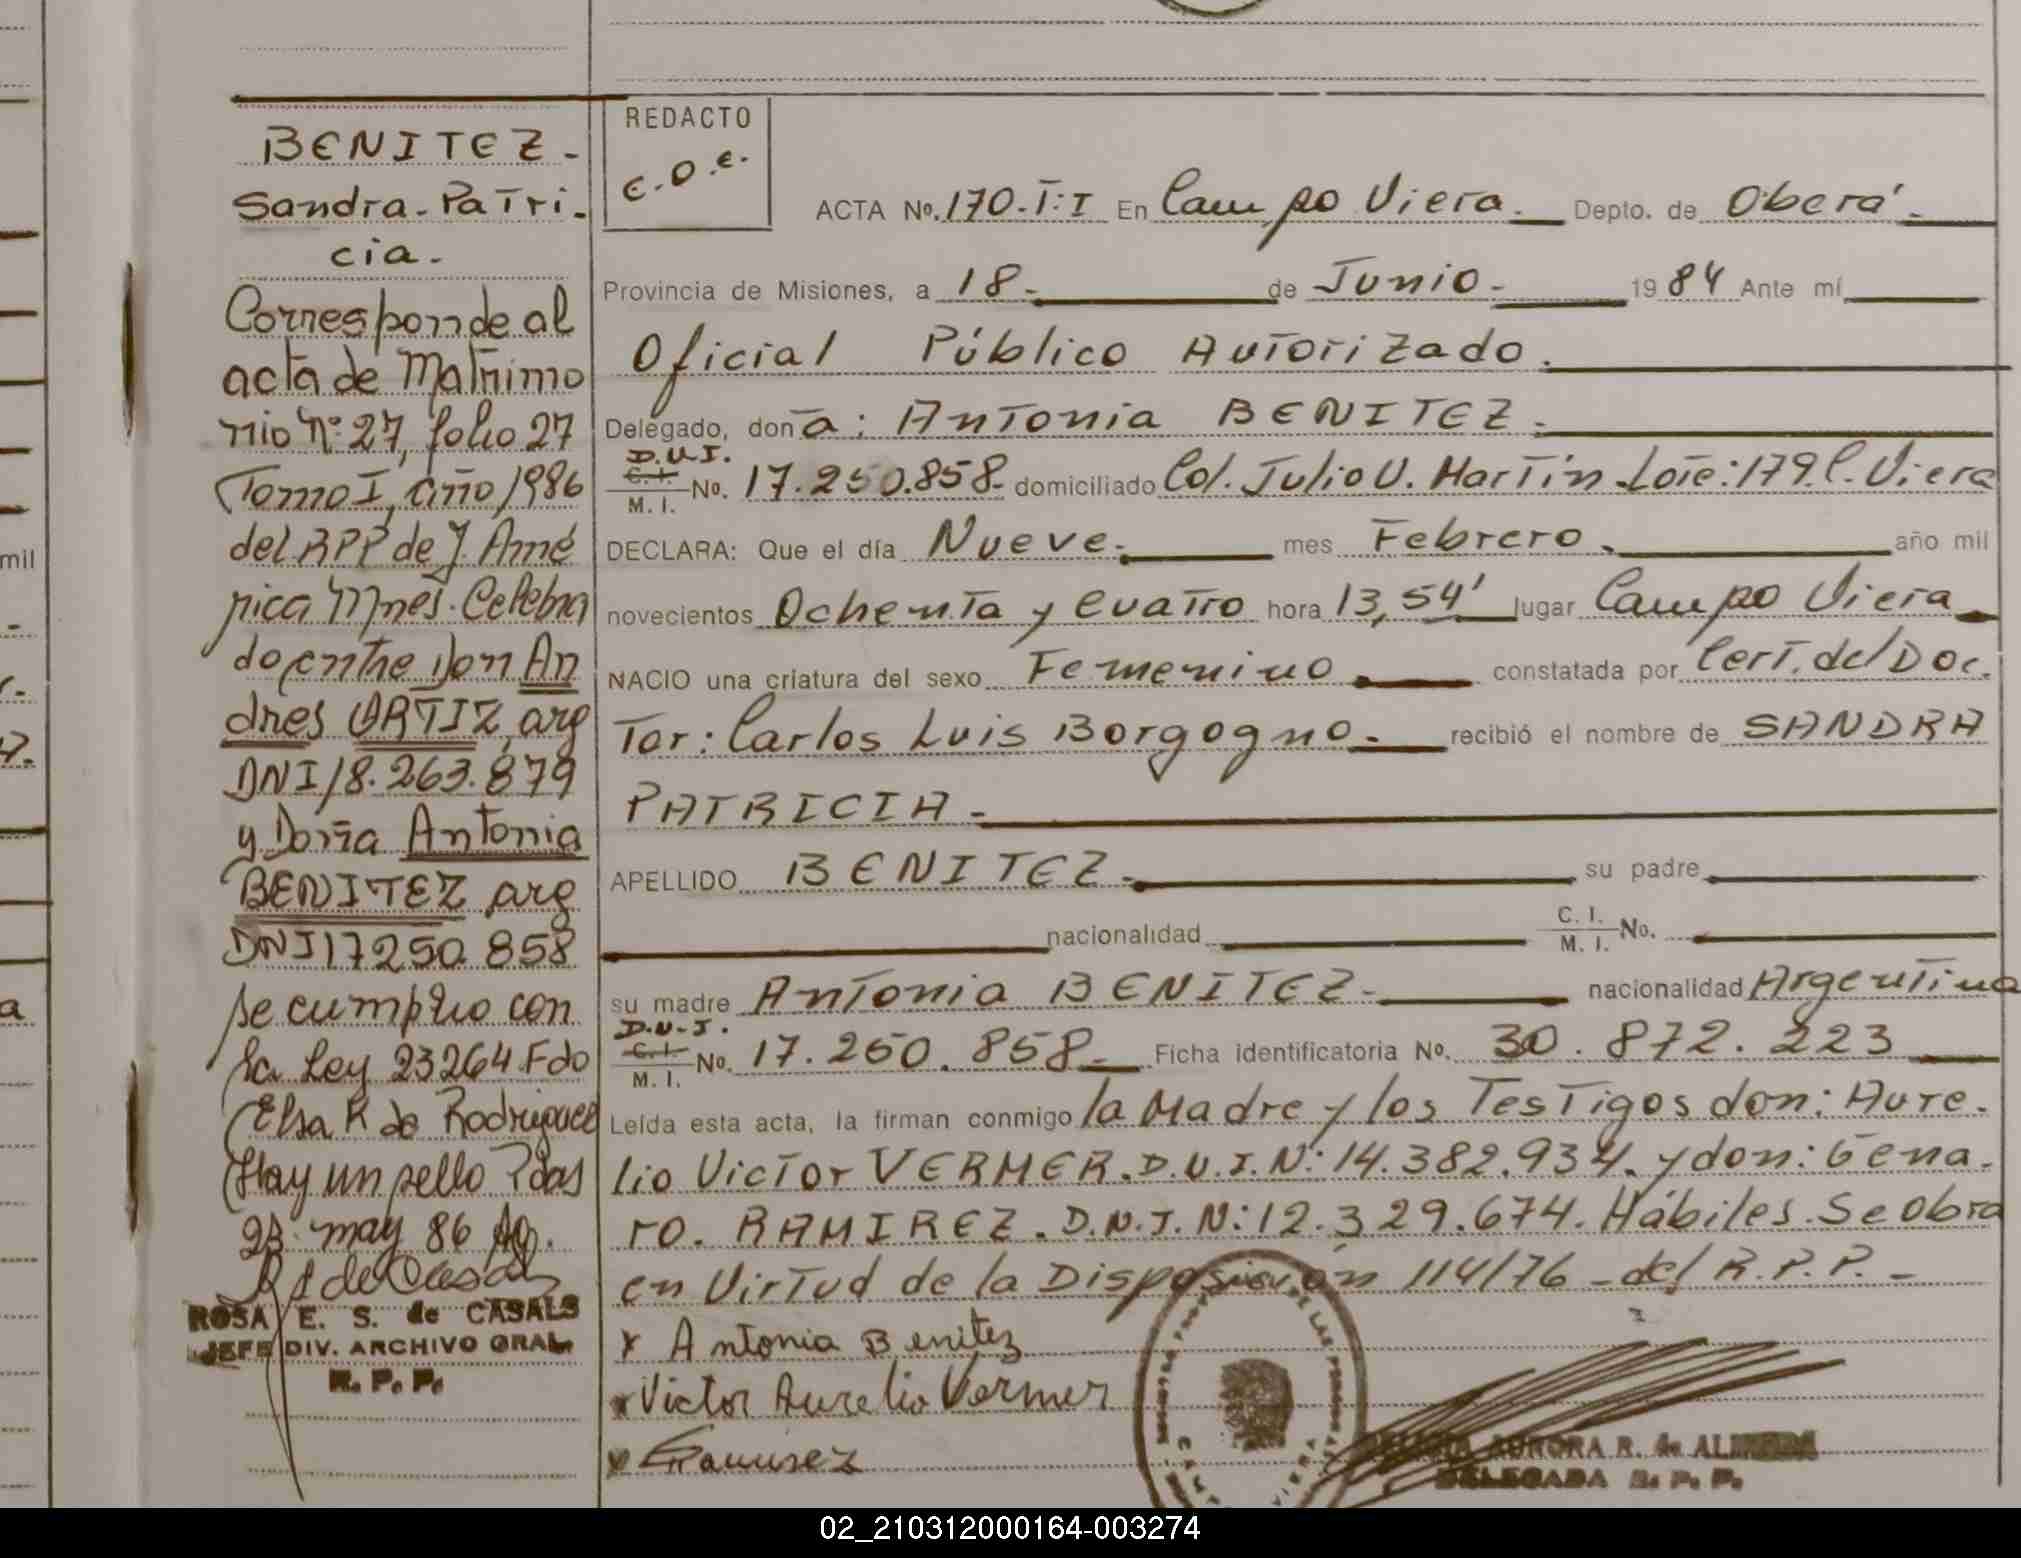 BENITEZ-
Sandra-Patri-
cia-
Corresponde al
acta de Matrimo
nio Nº 27, folio 27
Tomo I, año 1986
del RPP de J. Amé
rica Mnes. Celebra
do entre Don An
dres ORTIZ, arg
DNI 18.263.879
y Doña Antonia
BENITEZ, arg
DNI 17250.858
se cumplio con
la Ley 23264. Fdo
Elsa R de Rodriguez
Hay un sello Pdas
23 may 86
ROSA E. S. de CASALS
JEFE DIV. ARCHIVO GRAL
R. P. P.
REDACTO
E.O.E.
ACTA No. 170-T:I En Campo Viera.- Depto. de Oberá.-
Provincia de Misiones, a 18- de Junio- 1984 Ante mí
Oficial Público Autorizado.
Delegado, doña: Antonia BENITEZ-
D.N.I.
C.I.
M. I. No. 17.250.858- domiciliado Col. Julio U. Martín-Lote:179.C.Viera
DECLARA: Que el día Nueve- mes Febrero- año mil
novecientos Ochenta y Cuatro hora 13,54' lugar Campo Viera
NACIO una criatura del sexo Femenino constatada por Cert. del Doc.
tor: Carlos Luis Borgogno- recibió el nombre de SANDRA
PATRICIA-
APELLIDO BENITEZ- su padre
nacionalidad C. I.
M. I. No.
su madre Antonia BENITEZ- nacionalidad Argentina
D.N.I.
C.I.
M. I. No. 17.250.858- Ficha identificatoria No. 30.872.223
Leída esta acta, la firman conmigo la Madre y los Testigos don: Aure-
lio Victor VERMER. D.N.I.N: 14.382.934. y don: Gena-
ro. RAMIREZ. D.N.I.N: 12.329.674. Hábiles. Se obra
en Virtud de la Disposición 114/76 - del R.P.P.-
x Antonia Benitez
x Victor Aurelio Vermer
x GRamirez
AURORA R. de
DELEGADA R. P. P.
mil
a
02_210312000164-003274